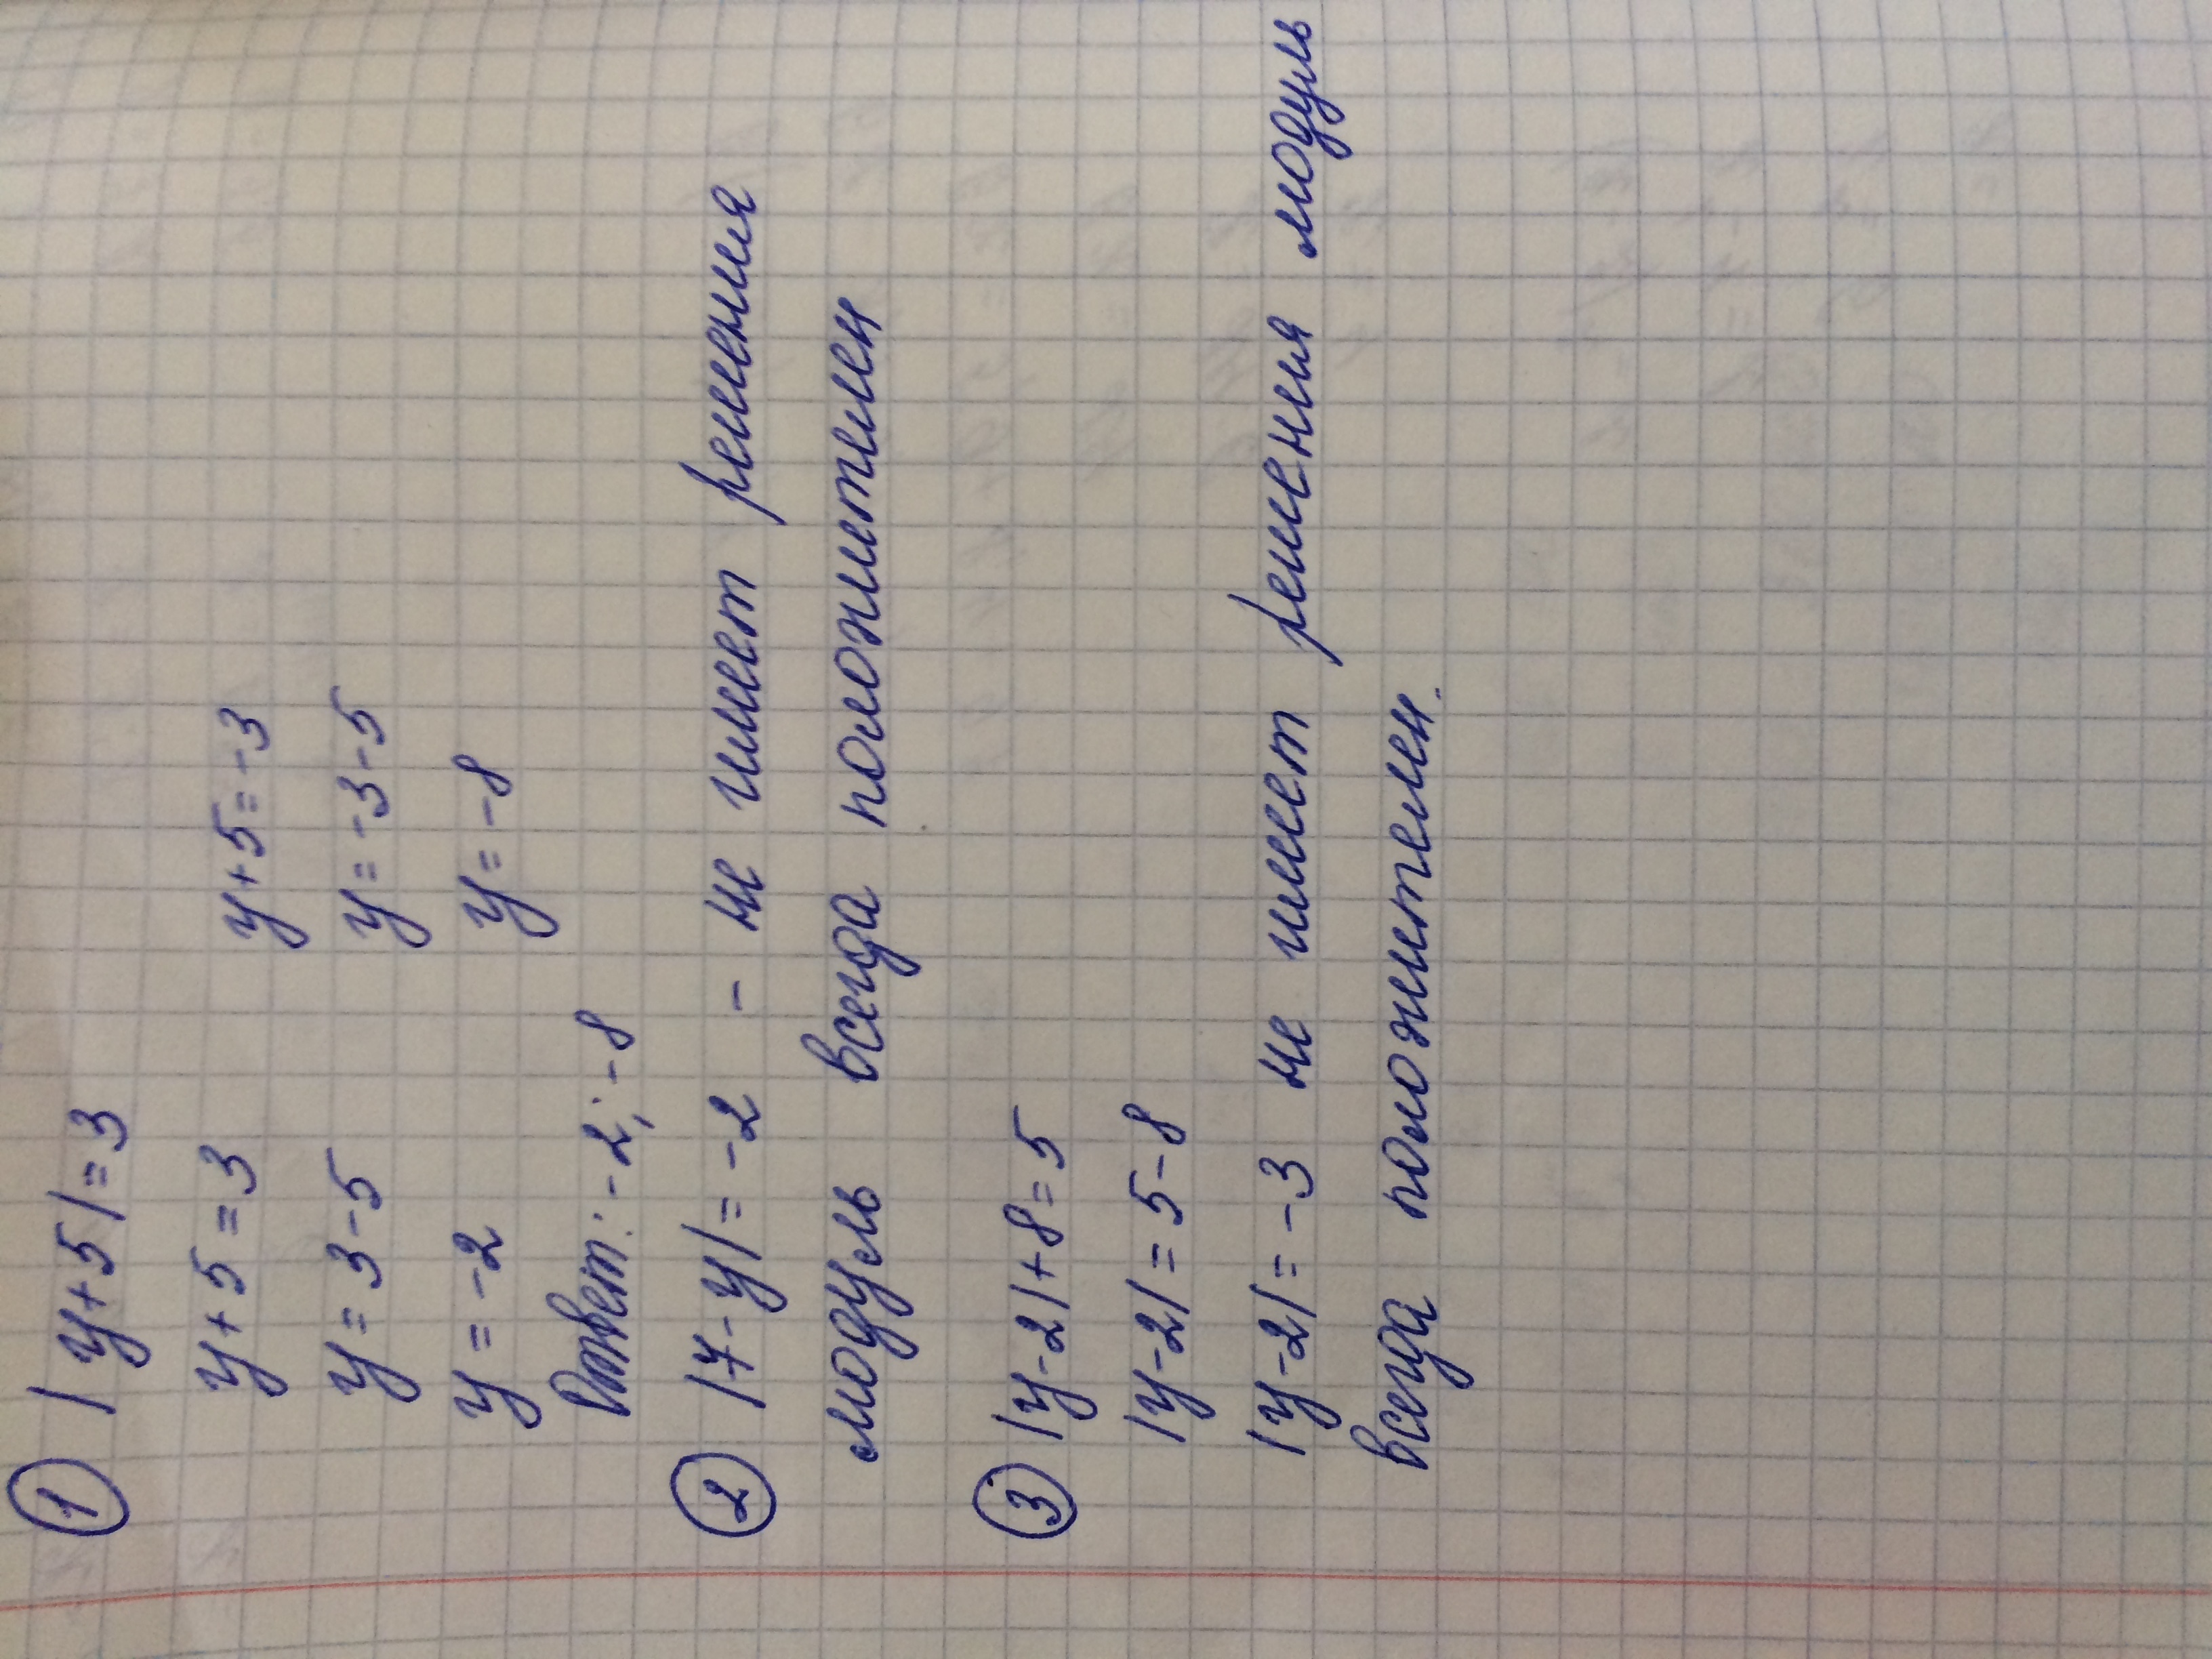 1 |y+5|=3
y+5=3 y+5=-3
y=3-5 y=-3-5
y=-2 y=-8
Ответ: -2; -8
2 |7-y|=-2 - не имеет решения
модуль всегда положителен
3 |y-2|+8=5
|y-2|=5-8
|y-2|=-3 не имеет решения модуль
всегда положителен.